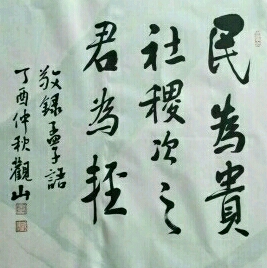 民為貴
社稷次之
君為輕
敬錄孟子語
丁酉仲秋觀山